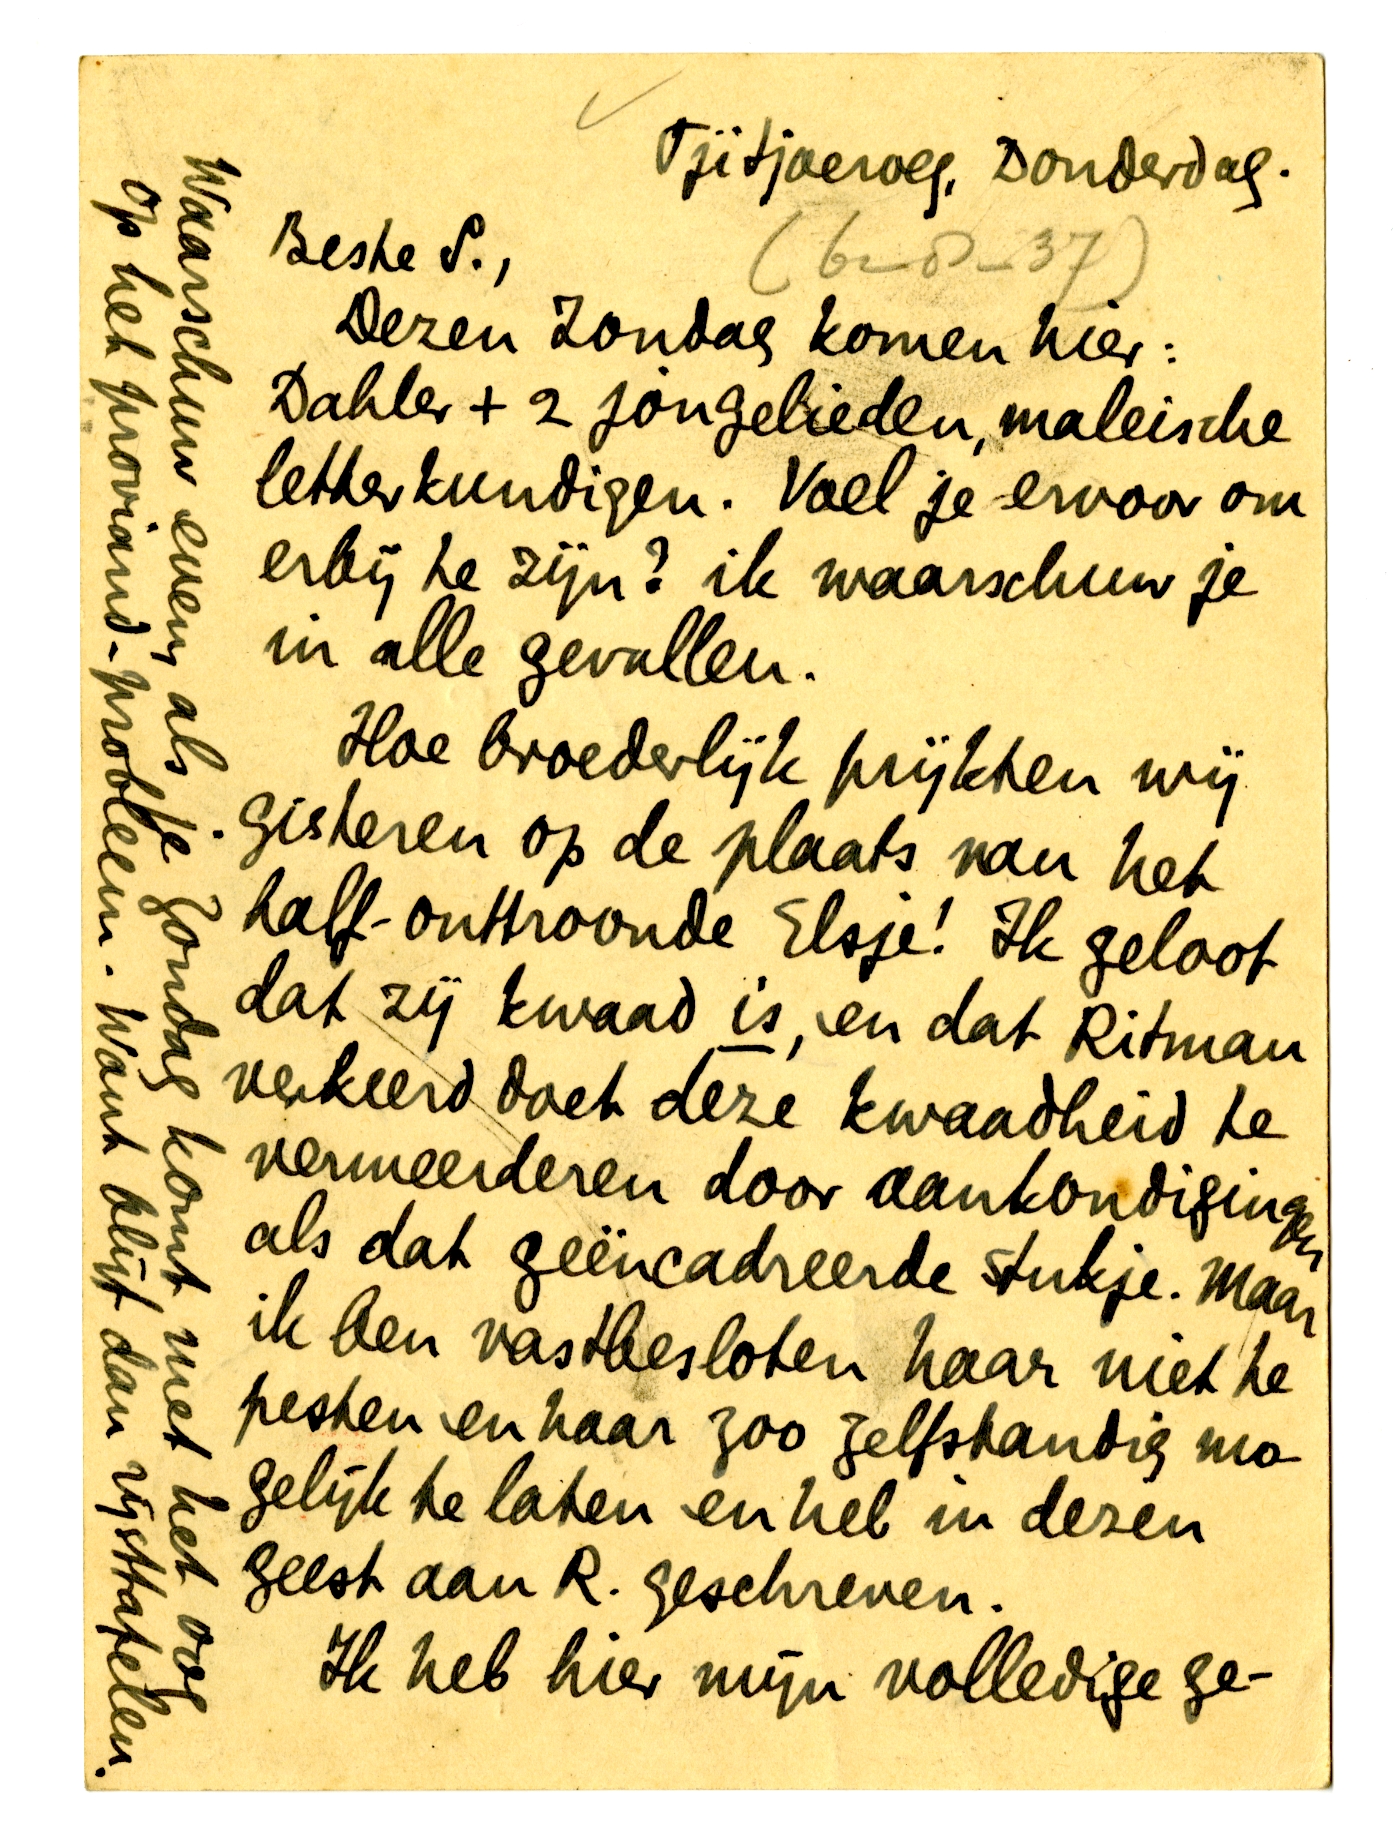 Tjitjoeroeg, Donderdag.
(6-8-37)
Beste S.,
Dezen Zondag komen hier:
Dahler + 2 jongelieden, maleische
letterkundigen. Voel je ervoor om
erbij te zijn? ik waarschuw je
in alle gevallen.
Hoe broederlijk prijkten wij
gisteren op de plaats van het
half-onttroonde Elsje! Ik geloof
dat zij kwaad is, en dat Ritman
verkeerd doet deze kwaadheid te
vermeerderen door aankondigingen
als dat geëncadreerde stukje. Maar
ik ben vastbesloten haar niet te
pesten en haar zoo zelfstandig mo-
gelijk te laten en heb in dezen
geest aan R. geschreven.
Ik heb hier mijn volledige ge-
Waarschuw even, als je Zondag komt, met het oog
op het proviand-probleem. Want blijf dan rijsttafelen.